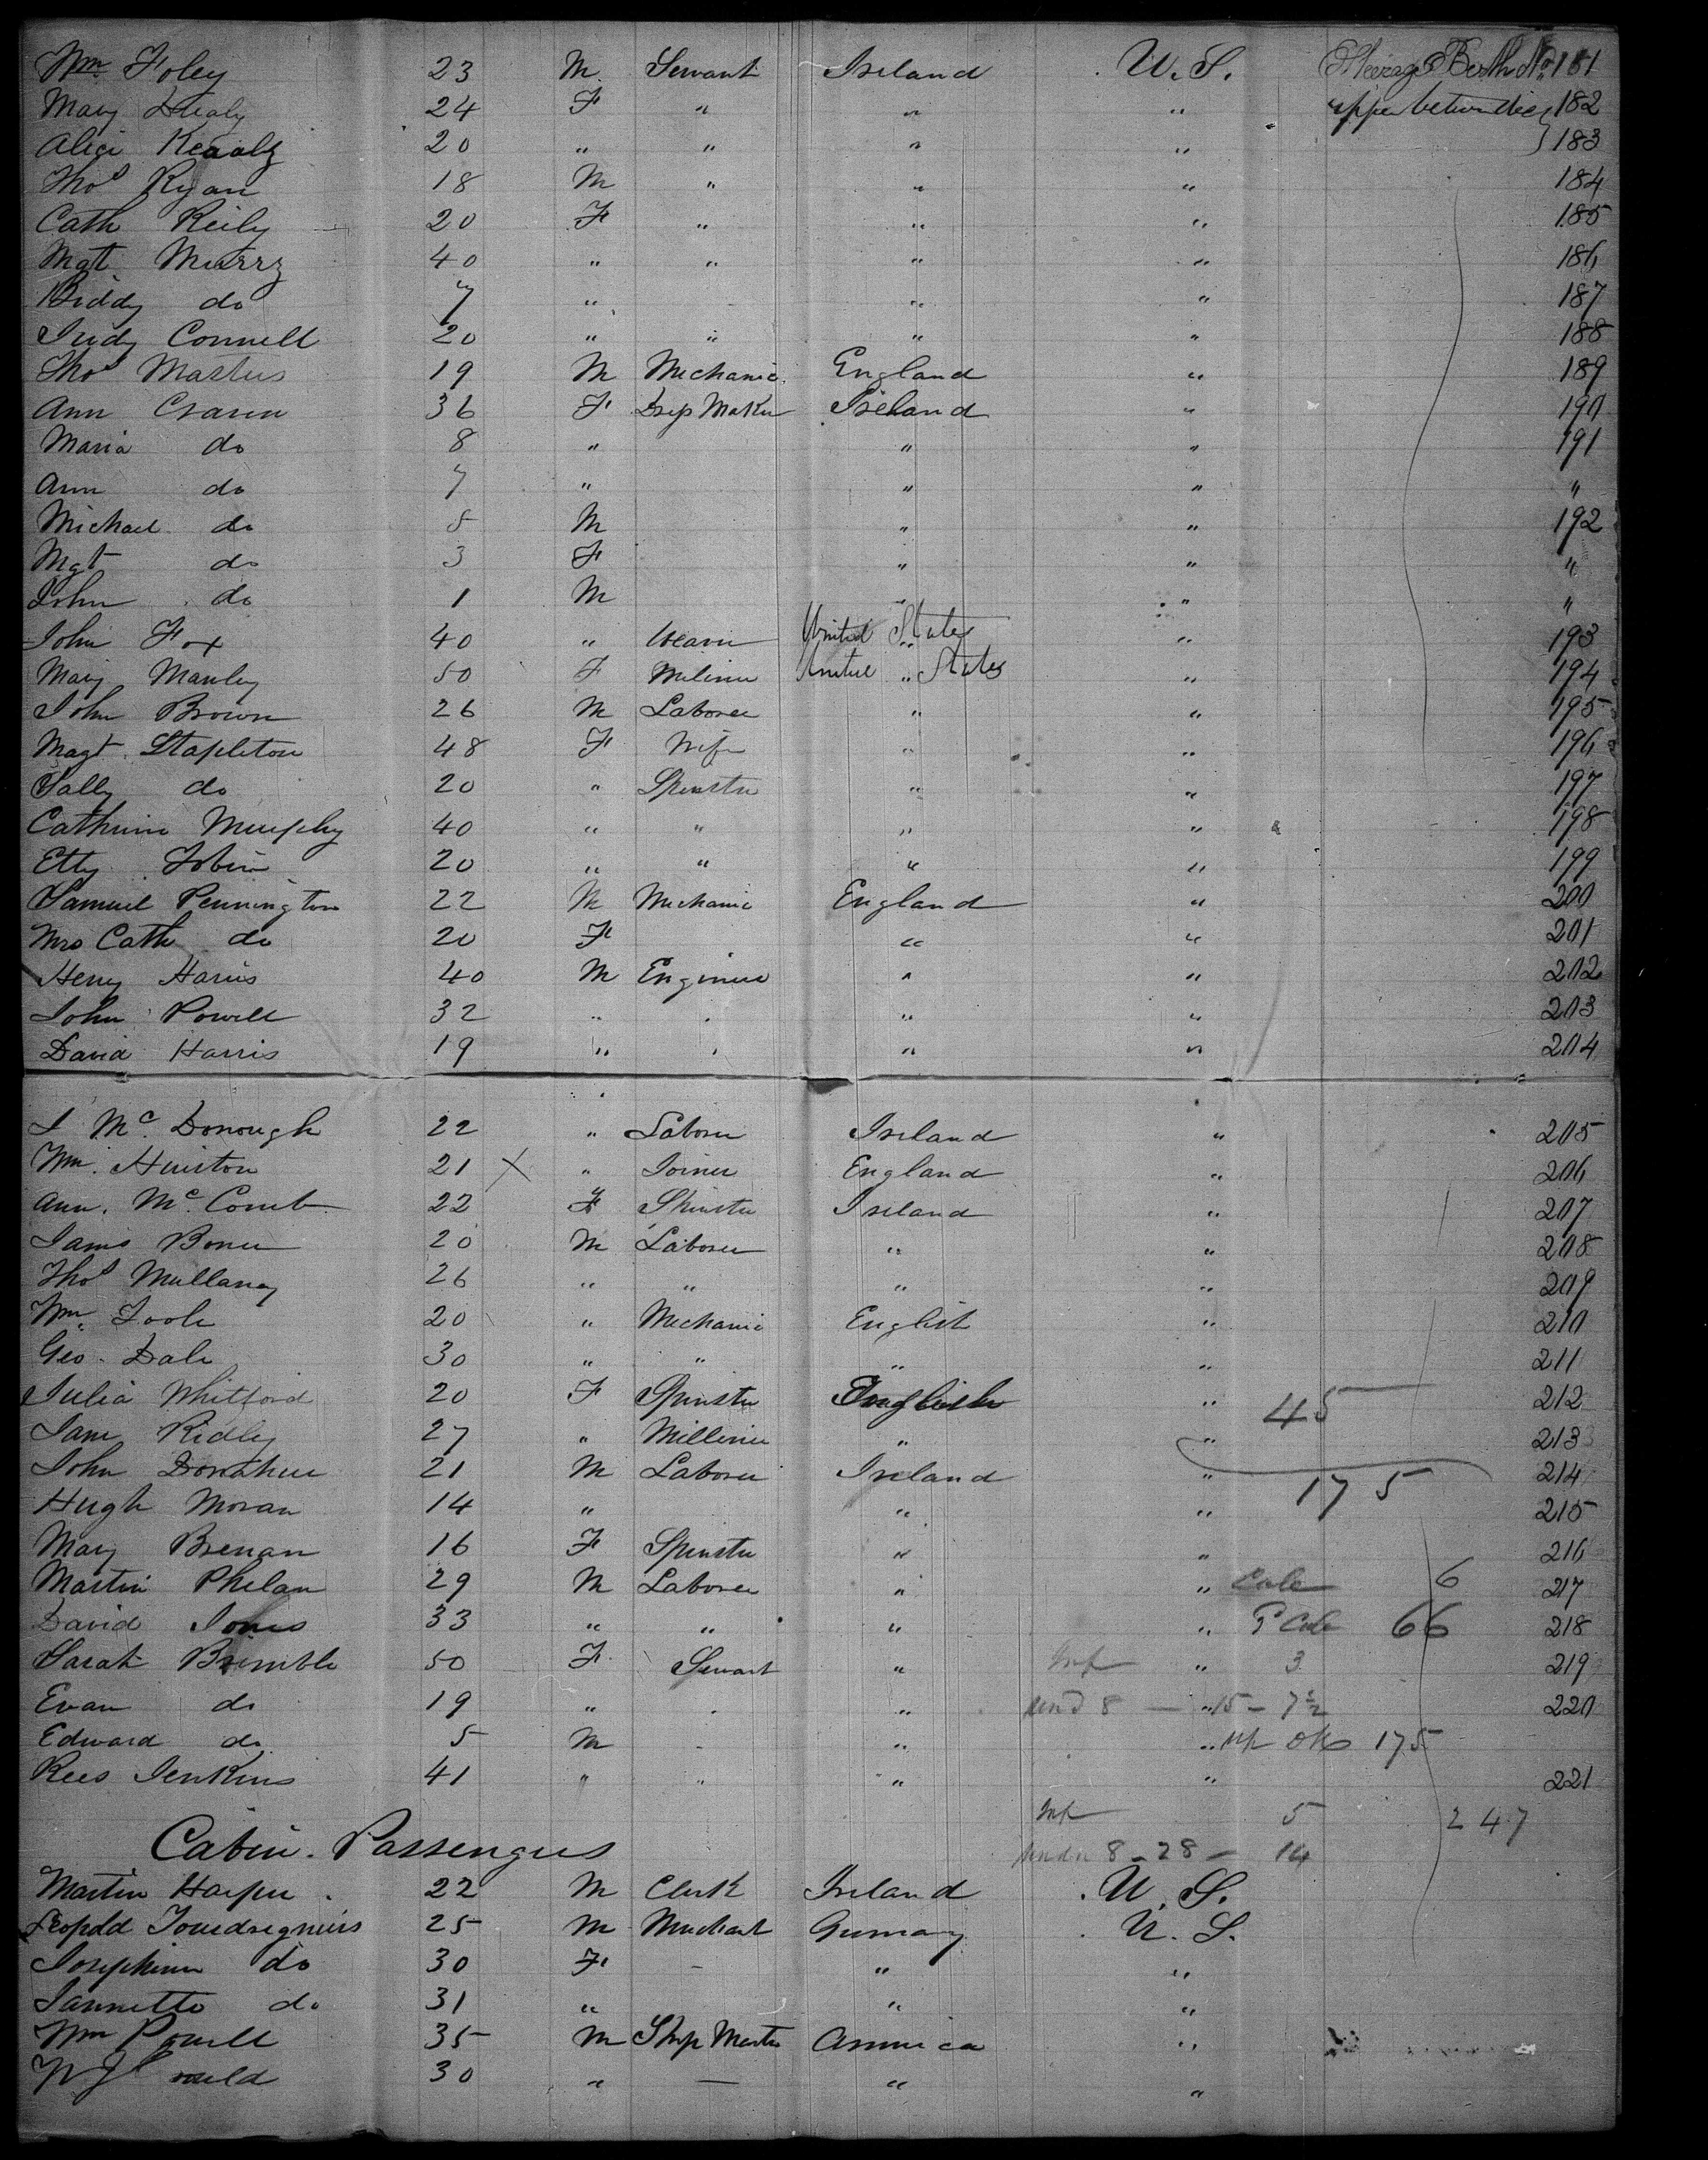 Wm Foley 23 M. Servant Ireland U.S. Steerage Berth No 181
Mary Healy 24 F " " " upper between decks 182
Alice Kealy 20 " " " " 183
Thos Ryan 18 M " " " 184
Cath Reily 20 F " " " 185
Mgt Murry 40 " " " " 186
Biddy do 7 " " " 187
Judy Connell 20 " " " " 188
Thos Masters 19 M Mechanic England " 189
Ann 36 F Dress Maker Ireland " 190
Maria do 8 " " " 191
Ann do 7 " " " "
Michael do 5 M " " 192
Mgt do 3 F " " "
John do 1 M " " "
John Fox 40 " United States " 193
Mary Manley 50 F Miliner United " States " 194
John Brown 26 M Laborer " " 195
Magt Stapleton 48 F Wife " " 196
Sally do 20 " Spinster " " 197
Catherine Murphy 40 " " " " 198
Etty Tobin 20 " " " " 199
Samuel Pennington 22 M Mechanic England " 200
Mrs Cath do 20 F " " 201
Henry Harris 40 M Engineer " " 202
John Powell 32 " " " " 203
David Harris 19 " " " " 204
J McDonough 22 " Laborer Ireland " 205
Wm. Hinston 21 X " Joiner England " 206
Ann. McComb 22 F Spinster Ireland " 207
James Boner 20 M Laborer " " 208
Thos Mullaney 26 " " " " 209
Wm. Toole 20 " Mechanic English " 210
Geo. Dale 30 " " " " 211
Julia Whitford 20 F Spinster English " 45 212
Jane Ridley 27 " Milliner " " 213
John Donahue 21 M Laborer Ireland " 175 214
Hugh Moran 14 " " " 215
Mary Brenan 16 F Spinster " " 216
Martin Phelan 29 M Laborer " " 6 217
David Jones 33 " " " " 66 218
Sarah Brimble 50 F Servant " Inf " 3 219
Evan do 19 " " " und 8 — " 15 - 7½ 220
Edward do 5 M " " " 175
Rees Jenkins 41 " " " " 221
Inf 5 247
Cabin. Passengers under 8 - 28 - 14
Martin Harper 22 M Clerk Ireland U.S.
Leopold 25 M Merchant Germany U.S.
Josephine do 30 F - " "
Jannette do 31 " " "
Wm Powell 35 M Ship Master America "
30 " — " "